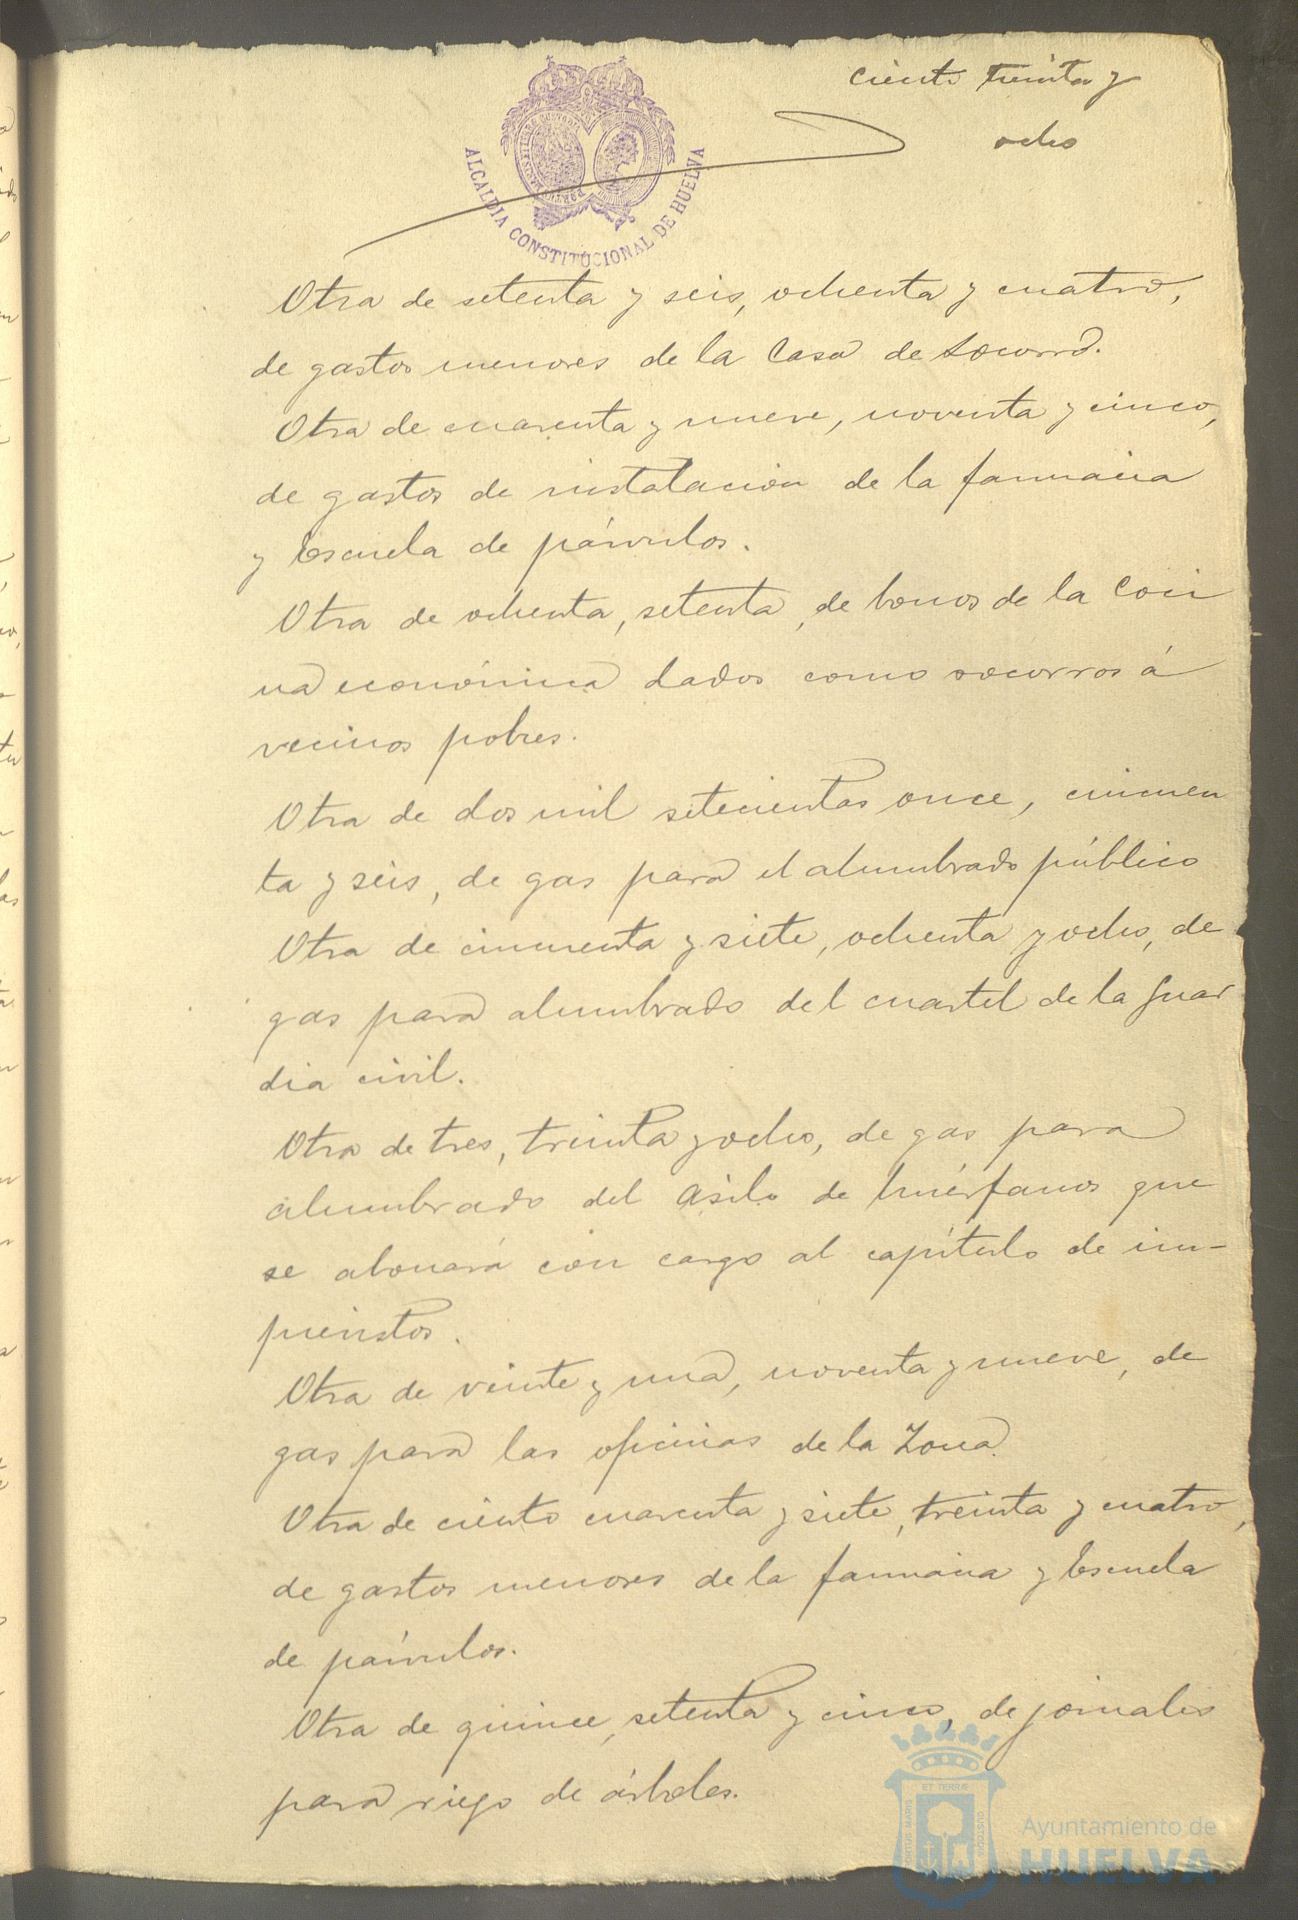 ciento treinta y
ocho
ALCALDIA CONSTITUCIONAL DE HUELVA
Otra de setenta y seis, ochenta y cuatro,
de gastos menores de la Casa de Socorro.
Otra de cuarenta y nueve, noventa y cinco,
de gastos de instalación de la farmacia
y Escuela de párvulos.
Otra de ochenta, setenta, de bonos de la Coci
na económica dados como socorros á
vecinos pobres.
Otra de dos mil setecientas once, cincuen
ta y seis, de gas para el alumbrado público
Otra de cincuenta y siete, ochenta y ocho, de
gas para alumbrado del cuartel de la Guar
dia civil.
Otra de tres, treinta y ocho, de gas para
alumbrado del Asilo de huérfanos que
se abonará con cargo al capítulo de im-
previstos.
Otra de veinte y una, noventa y nueve, de
gas para las oficinas de la Zona.
Otra de ciento cuarenta y siete, treinta y cuatro,
de gastos menores de la farmacia y Escuela
de párvulos.
Otra de quince, setenta y cinco, de jornales
para riego de árboles.
Ayuntamiento de
HUELVA